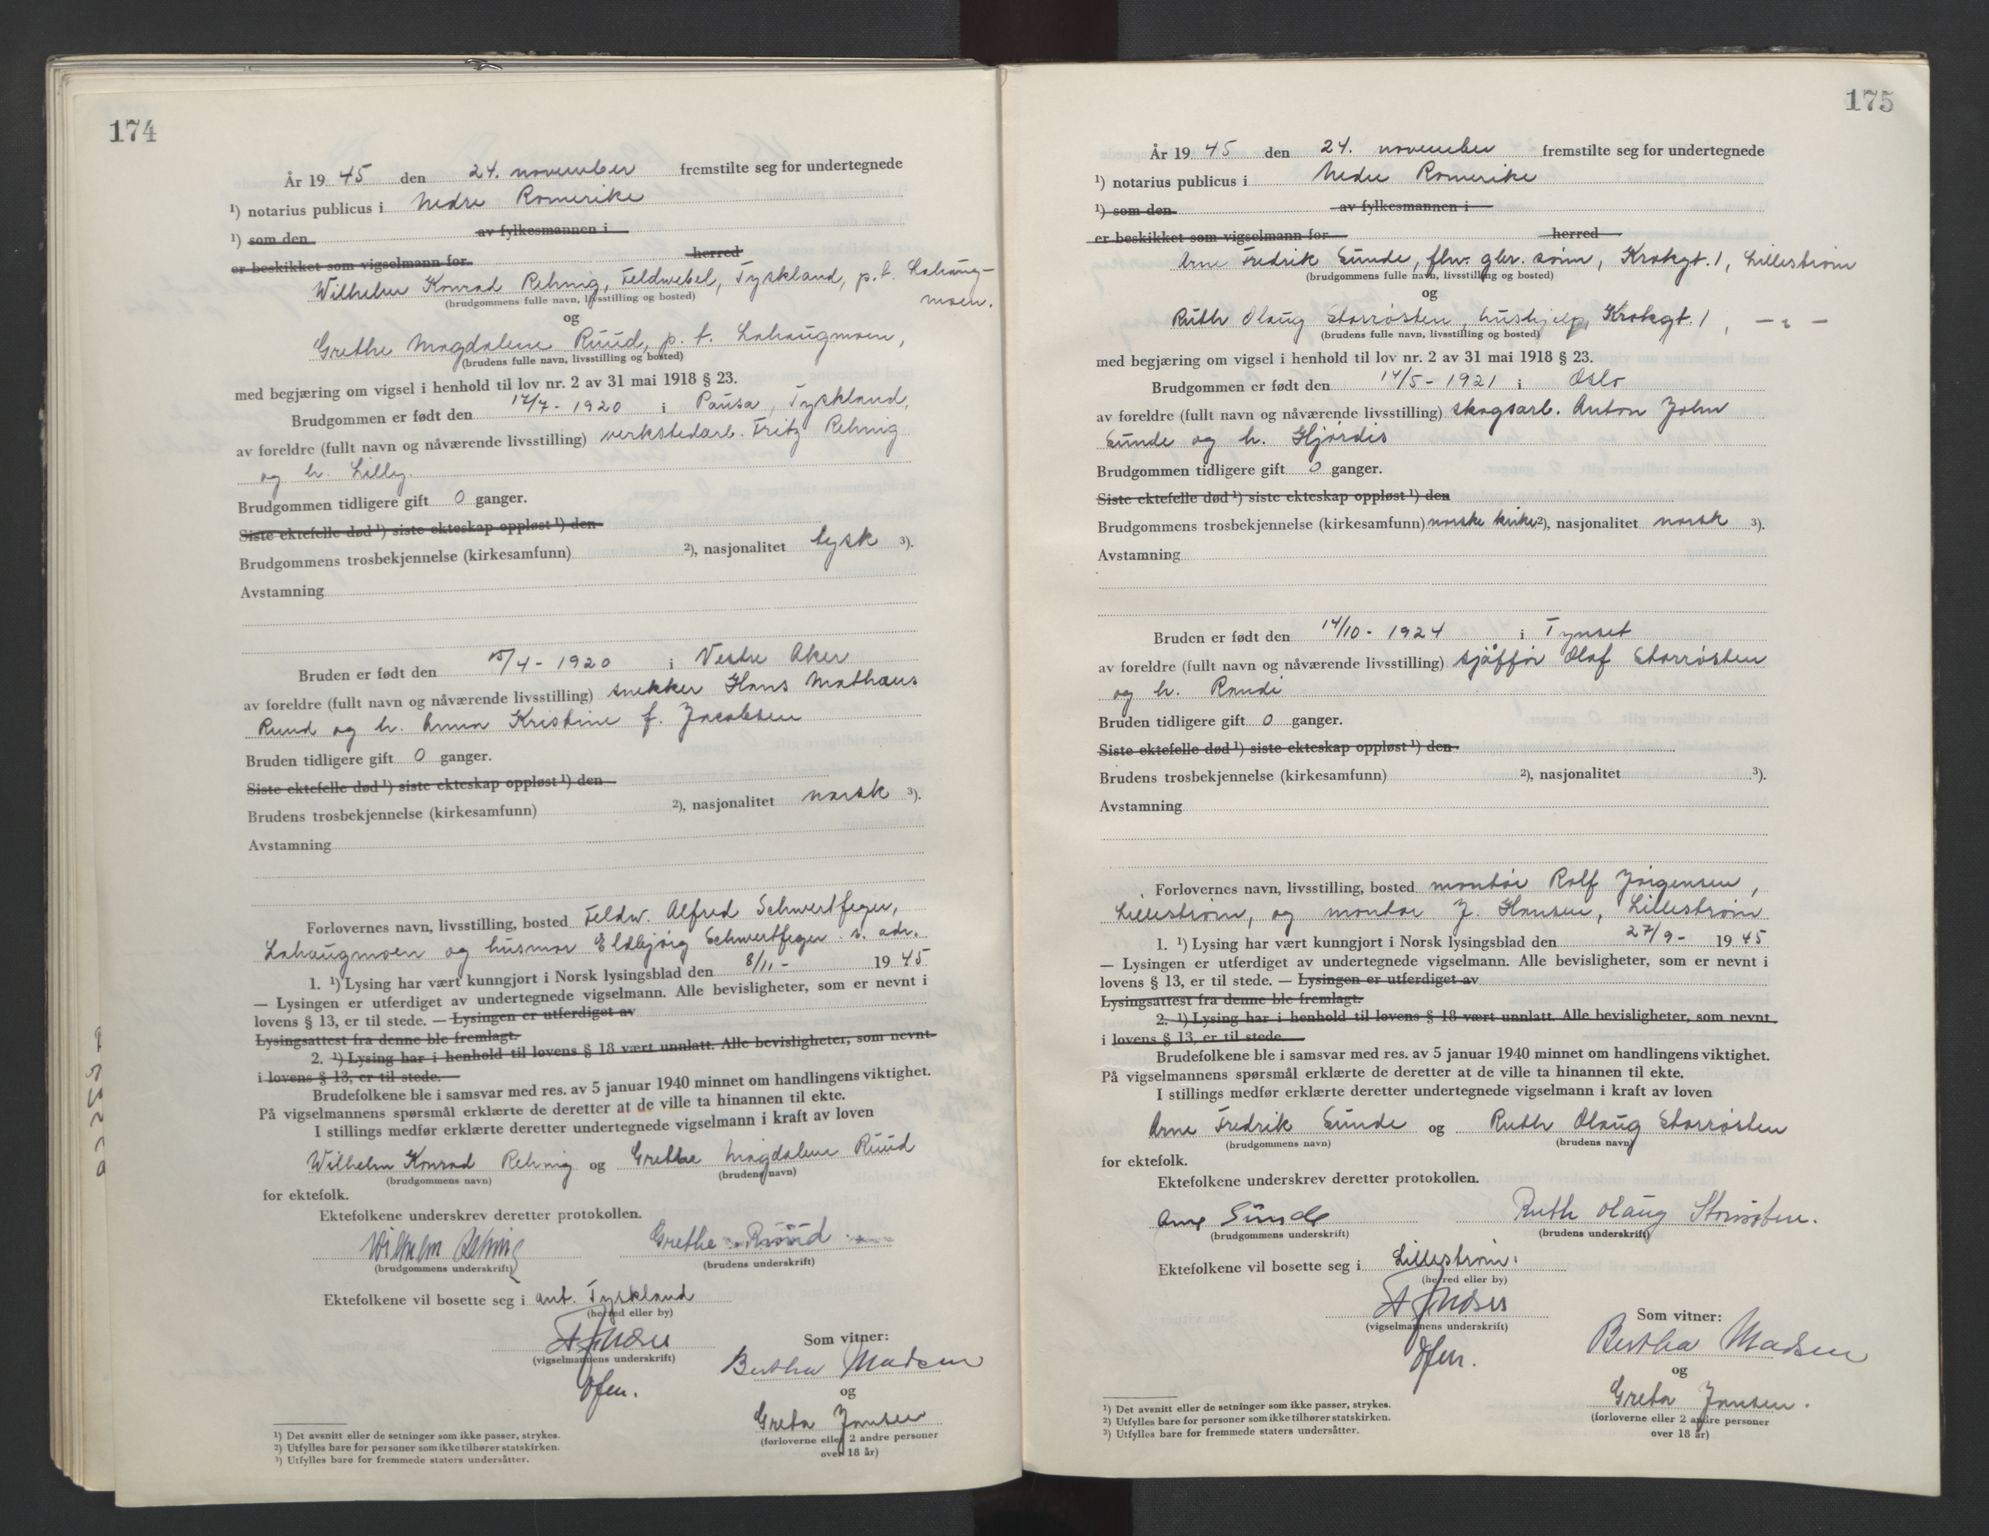 174
År 19 45 den 24. november fremstilte seg for undertegnede
¹) notarius publicus i Nedre Romerike
¹) som den av fylkesmannen i
er beskikket som vigselmann for herred
Wilhelm Konrad Rehnig, Feldwebel, Tyskland, p.t. Lahaug-
(brudgommens fulle navn, livsstilling og bosted) moen.
og
Grethe Magdalene Ruud, p.t. Lahaugmoen,
(brudens fulle navn, livsstilling og bosted)
med begjæring om vigsel i henhold til lov nr. 2 av 31 mai 1918 § 23.
Brudgommen er født den 17/7 - 1920 i Pausa, Tyskland,
av foreldre (fullt navn og nåværende livsstilling) verkstedarb. Fritz Rehnig
og h. Lilly.
Brudgommen tidligere gift 0 ganger.
Siste ektefelle død ¹) siste ekteskap oppløst ¹) den
Brudgommens trosbekjennelse (kirkesamfunn) ²), nasjonalitet tysk ³).
Avstamning
Bruden er født den 15/4 - 1920 i Vestre Aker
av foreldre (fullt navn og nåværende livsstilling) snekker Hans Mathæus
Ruud og h. Anna Kristine f. Jacobsen
Bruden tidligere gift 0 ganger.
Siste ektefelle død ¹) siste ekteskap oppløst ¹) den
Brudens trosbekjennelse (kirkesamfunn) ²), nasjonalitet norsk ³).
Avstamning
Forlovernes navn, livsstilling, bosted Feldw. Alfred Schwertfeger,
Lahaugmoen og husmor Eldbjørg Schwertfeger s. adr.
1. ¹) Lysing har vært kunngjort i Norsk lysingsblad den 8/11 - 19 45
— Lysingen er utferdiget av undertegnede vigselmann. Alle bevisligheter, som er nevnt i
lovens § 13, er til stede. — Lysingen er utferdiget av
Lysingsattest fra denne ble fremlagt.
2. ¹) Lysing har i henhold til lovens § 18 vært unnlatt. Alle bevisligheter, som nevnt
i lovens § 13, er til stede.
Brudefolkene ble i samsvar med res. av 5 januar 1940 minnet om handlingens viktighet.
På vigselmannens spørsmål erklærte de deretter at de ville ta hinannen til ekte.
I stillings medfør erklærte deretter undertegnede vigselmann i kraft av loven
Wilhelm Konrad Rehnig og Grethe Magdalene Ruud
(brudgommens navn) (brudens navn)
for ektefolk.
Ektefolkene underskrev deretter protokollen.
Wilhelm Rehnig Grethe Ruud
(brudgommens underskrift) (brudens underskrift)
Ektefolkene vil bosette seg i ant. Tyskland
(herred eller by)
(vigselmannens underskrift) Som vitner:
Bertha Madsen
og
Greta Jansen
(forloverne eller 2 andre personer
over 18 år)
¹) Det avsnitt eller de setninger som ikke passer, strykes.
²) Utfylles bare for personer som ikke tilhører statskirken.
³) Utfylles bare for fremmede staters undersåtter.
175
År 19 45 den 24. november fremstilte seg for undertegnede
¹) notarius publicus i Nedre Romerike
¹) som den av fylkesmannen i
er beskikket som vigselmann for herred
Arne Fredrik Sunde, flw. gbr. sønn, Krokgt. 1, Lillestrøm
(brudgommens fulle navn, livsstilling og bosted)
og
Ruth Olaug Storrøsten, hushjelp, Krokgt. 1, — " —
(brudens fulle navn, livsstilling og bosted)
med begjæring om vigsel i henhold til lov nr. 2 av 31 mai 1918 § 23.
Brudgommen er født den 14/5 - 1921 i Oslo
av foreldre (fullt navn og nåværende livsstilling) skogsarb. Anton John
Sunde og h. Hjørdis
Brudgommen tidligere gift 0 ganger.
Siste ektefelle død ¹) siste ekteskap oppløst ¹) den
Brudgommens trosbekjennelse (kirkesamfunn) norske kirke ²), nasjonalitet norsk ³).
Avstamning
Bruden er født den 14/10 - 1924 i Tynset
av foreldre (fullt navn og nåværende livsstilling) sjåffør Olaf Storrøsten
og h. Randi
Bruden tidligere gift 0 ganger.
Siste ektefelle død ¹) siste ekteskap oppløst ¹) den
Brudens trosbekjennelse (kirkesamfunn) ²), nasjonalitet ³).
Avstamning
Forlovernes navn, livsstilling, bosted montør Rolf Jørgensen,
Lillestrøm, og montør J. Hansen, Lillestrøm
1. ¹) Lysing har vært kunngjort i Norsk lysingsblad den 27/9 - 19 45
— Lysingen er utferdiget av undertegnede vigselmann. Alle bevisligheter, som er nevnt i
lovens § 13, er til stede. — Lysingen er utferdiget av
Lysingsattest fra denne ble fremlagt.
2. ¹) Lysing har i henhold til lovens § 18 vært unnlatt. Alle bevisligheter, som nevnt
i lovens § 13, er til stede.
Brudefolkene ble i samsvar med res. av 5 januar 1940 minnet om handlingens viktighet.
På vigselmannens spørsmål erklærte de deretter at de ville ta hinannen til ekte.
I stillings medfør erklærte deretter undertegnede vigselmann i kraft av loven
Arne Fredrik Sunde og Ruth Olaug Storrøsten
(brudgommens navn) (brudens navn)
for ektefolk.
Ektefolkene underskrev deretter protokollen.
Arne Sunde Ruth Olaug Storrøsten.
(brudgommens underskrift) (brudens underskrift)
Ektefolkene vil bosette seg i Lillestrøm.
(herred eller by)
(vigselmannens underskrift) Som vitner:
Bertha Madsen
og
Greta Jansen.
(forloverne eller 2 andre personer
over 18 år)
¹) Det avsnitt eller de setninger som ikke passer, strykes.
²) Utfylles bare for personer som ikke tilhører statskirken.
³) Utfylles bare for fremmede staters undersåtter.